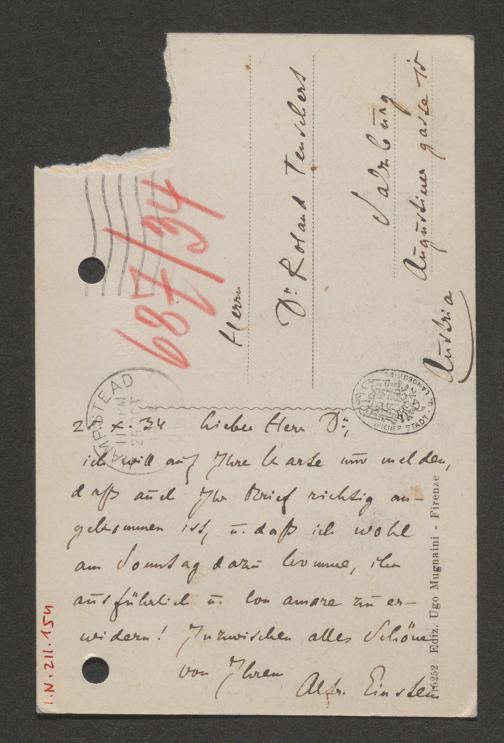 687/34
Herrn
Dr. Roland Tenschert
Salzburg
Augustinergasse
Austria
HAMPSTEAD
X. 34 Lieber Herr Dr.,
ich will auf Ihre Karte nur melden,
daß auch Ihr Brief richtig an-
gekommen ist, u. daß ich wohl
am Sonntag dazu komme, ihn
ausführlich u. con amore zu er-
widern! Inzwischen alles Schöne
von Ihrem
Alfr. Einstein
16252 Ediz. Ugo Mugnaini - Firenze
I.N. 211.154